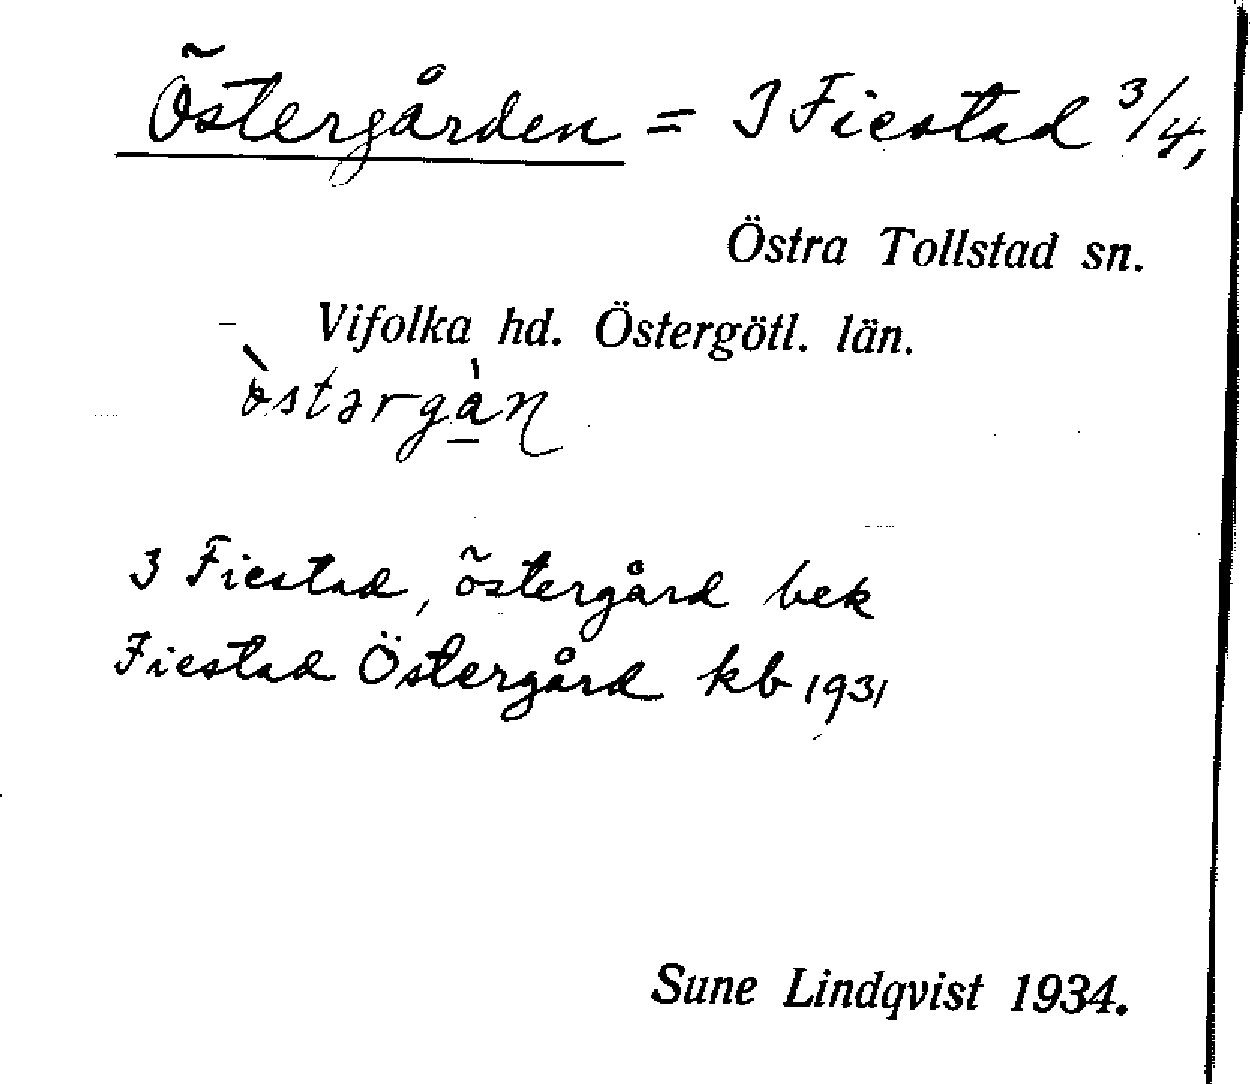 Östergården = 3 Fiestad 3/4,
Östra Tollstad sn.
Vifolka hd. Östergötl. län.
3 Fiestad, östergård bek
Fiestad Östergård kb 1931
Sune Lindqvist 1934.